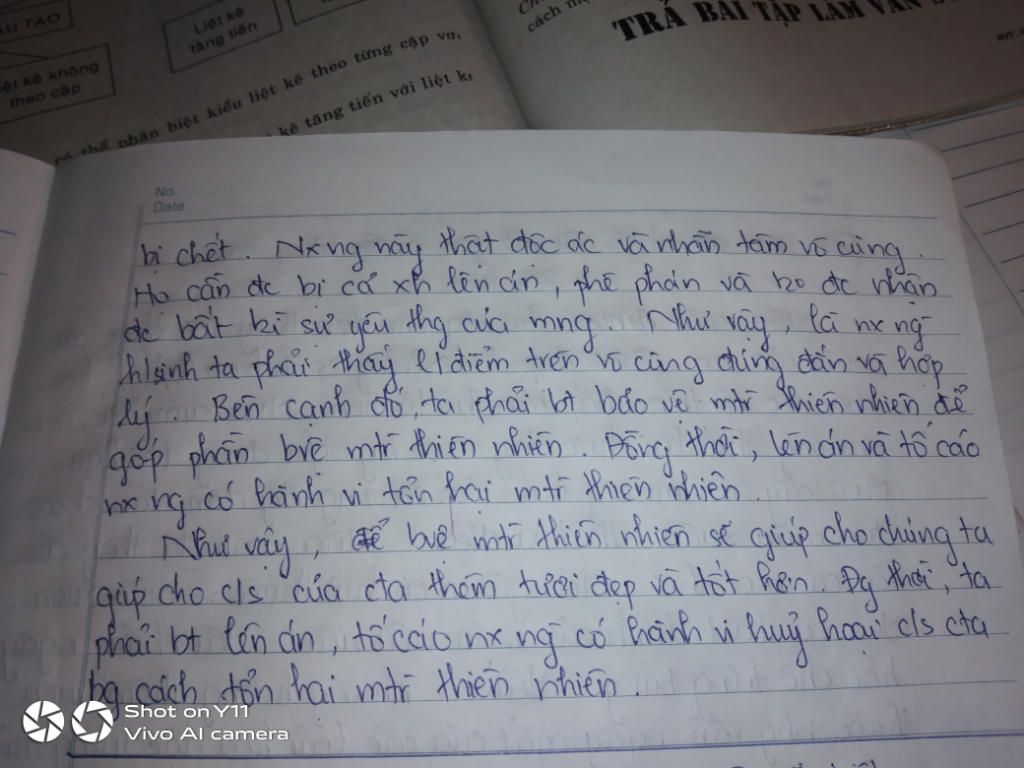 ẤU TẠO
Liệt kê
tăng tiến
iệt kê không
theo cặp
có thể phân biệt kiểu liệt kê theo từng cặp vớ
kê tăng tiến với liệt k
cách m
TRẢ BÀI TẬP LÀM VĂN S
No.
Date
bị chết. Nx ng này thật độc ác và nhẫn tâm vô cùng.
Họ cần đc bị cả xh lên án, phê phán và ko đc nhận
đc bất kì sự yêu thg của mng. Như vậy, là nx ng
h/sinh ta phải thấy l/điểm trên vô cùng đúng đắn và hợp
lý. Bên cạnh đó, ta phải bt bảo vệ mtr thiên nhiên để
góp phần bvệ mtr thiên nhiên. Đồng thời, lên án và tố cáo
nx ng có hành vi tổn hại mtr thiên nhiên.
Như vậy, để bvệ mtr thiên nhiên sẽ giúp cho chúng ta
giúp cho c/s của cta thêm tươi đẹp và tốt hơn. Đg thời, ta
phải bt lên án, tố cáo nx ng có hành vi huỷ hoại c/s cta
bg cách tổn hại mtr thiên nhiên.
Shot on Y11
Vivo AI camera